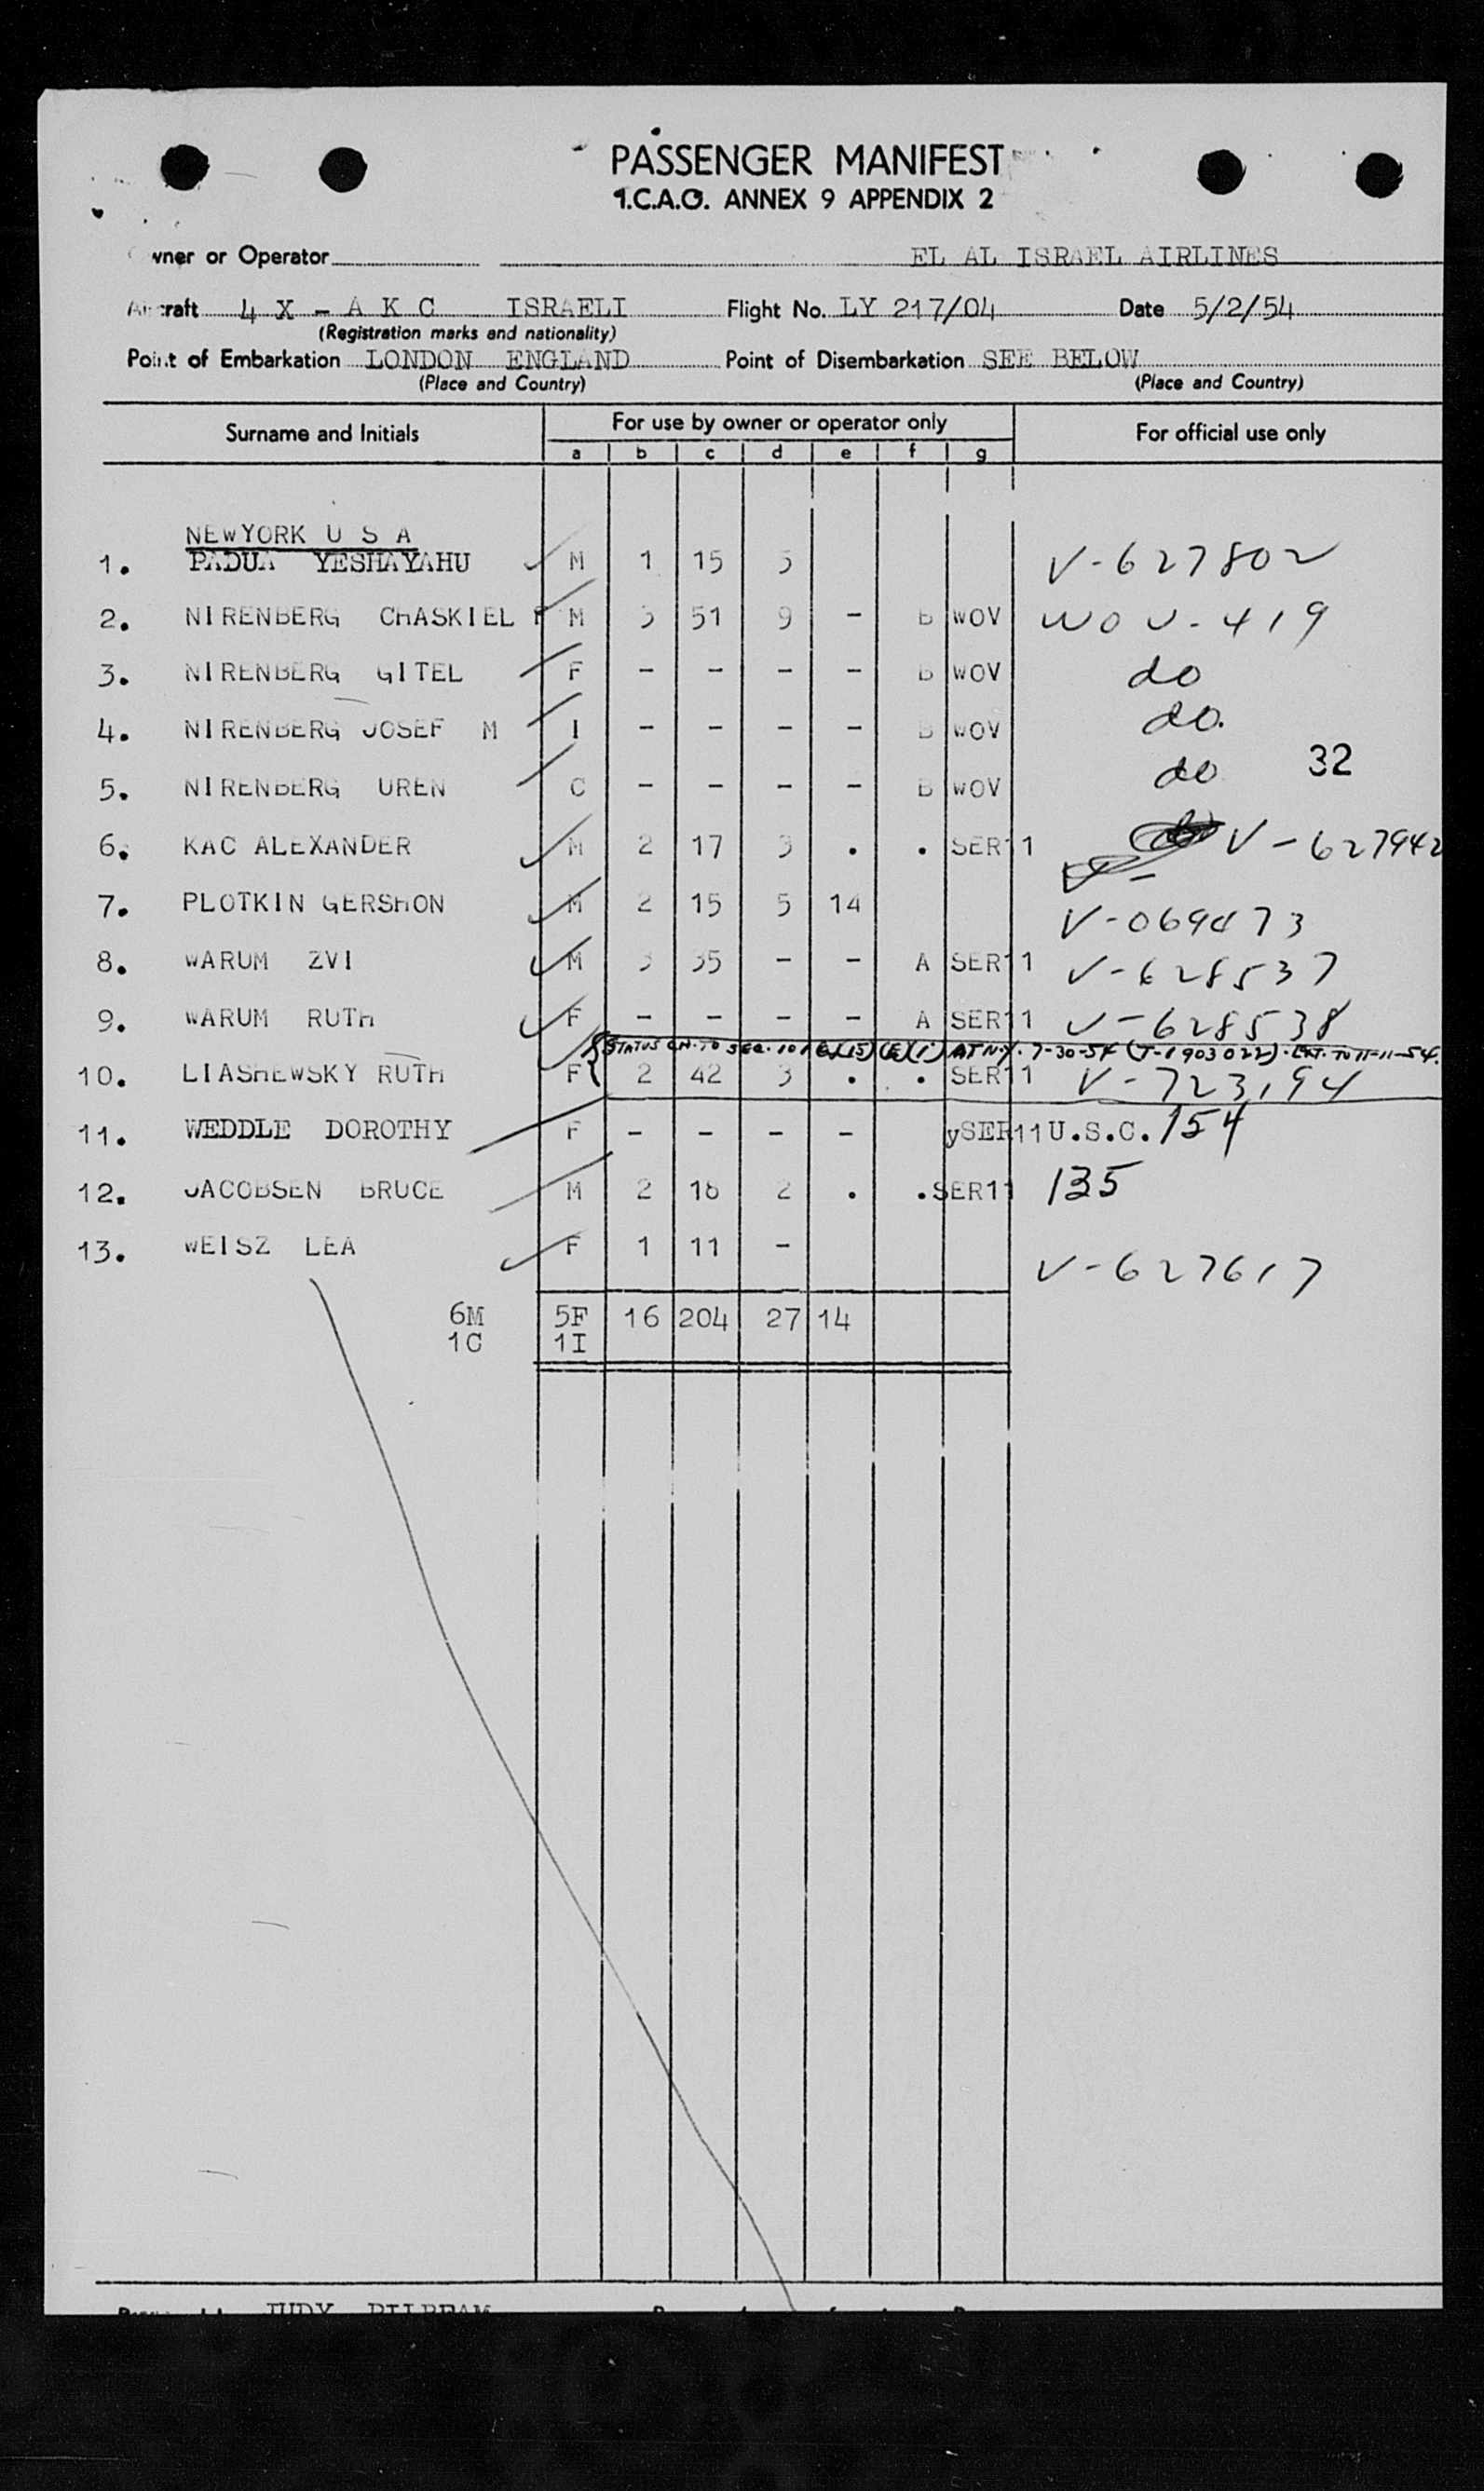 PASSENGER MANIFEST
I.C.A.O. ANNEX 9 APPENDIX 2
wner or Operator EL AL ISRAEL AIRLINES
Aircraft 4 X - A K C ISRAELI Flight No. LY 217/04 Date 5/2/54
(Registration marks and nationality)
Point of Embarkation LONDON ENGLAND Point of Disembarkation SEE BELOW
(Place and Country) (Place and Country)
Surname and Initials For use by owner or operator only For official use only
a b c d e f g
NEWYORK U S A
1. PADUA YESHAYAHU M 1 15 5 V-627802
2. NIRENBERG CHASKIEL M 3 51 9 - B WOV WOV-419
3. NIRENBERG GITEL F - - - - B WOV do
4. NIRENBERG JOSEF M I - - - - B WOV do.
5. NIRENBERG UREN C - - - - B WOV do 32
6. KAC ALEXANDER M 2 17 3 . . SER11 V-627942
V-
7. PLOTKIN GERSHON M 2 15 5 14 V-069473
8. WARUM ZVI M 3 35 - - A SER11 V-628537
9. WARUM RUTH F - - - - A SER11 V-628538
STATUS CH. TO SEC. 101(a)(15)(E)(i) AT N.Y. 7-30-54 (T-1903022). EXT. TO 11-11-54.
10. LIASHEWSKY RUTH F 2 42 3 . . SER11 V-723194
11. WEDDLE DOROTHY F - - - - ySER11 U.S.C. 154
12. JACOBSEN BRUCE M 2 18 2 . . SER11 135
13. WEISZ LEA F 1 11 - V-627617
6M 5F 16 204 27 14
1C 1I
JUDY PILBEAM